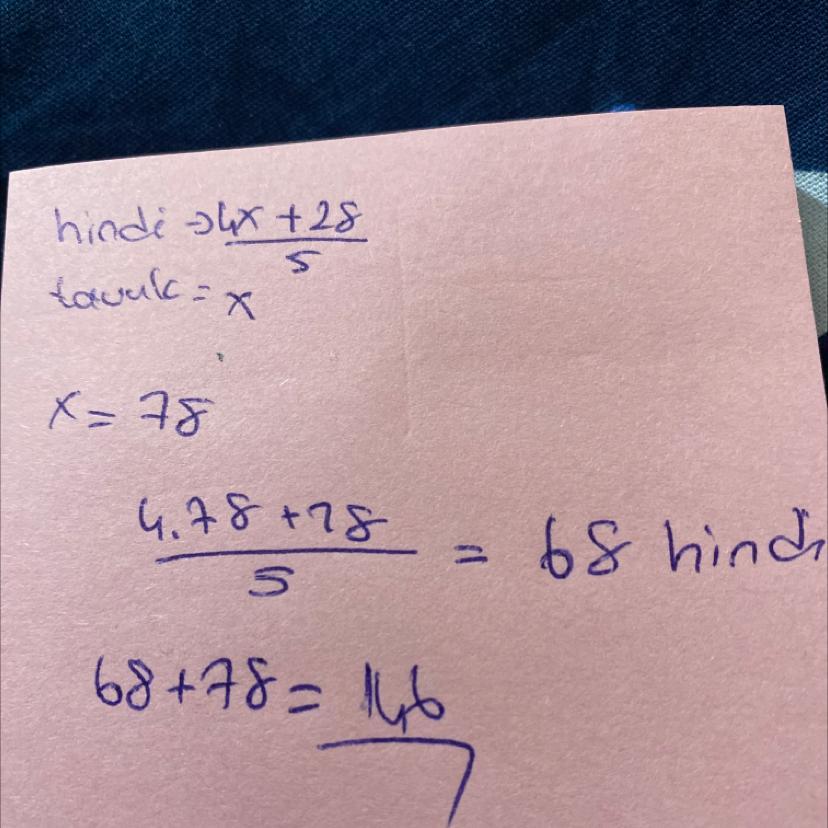 hindi → 4x + 28
5
tavuk = x
x = 78
4.78 + 28
5
= 68 hindi
68 + 78 = 146